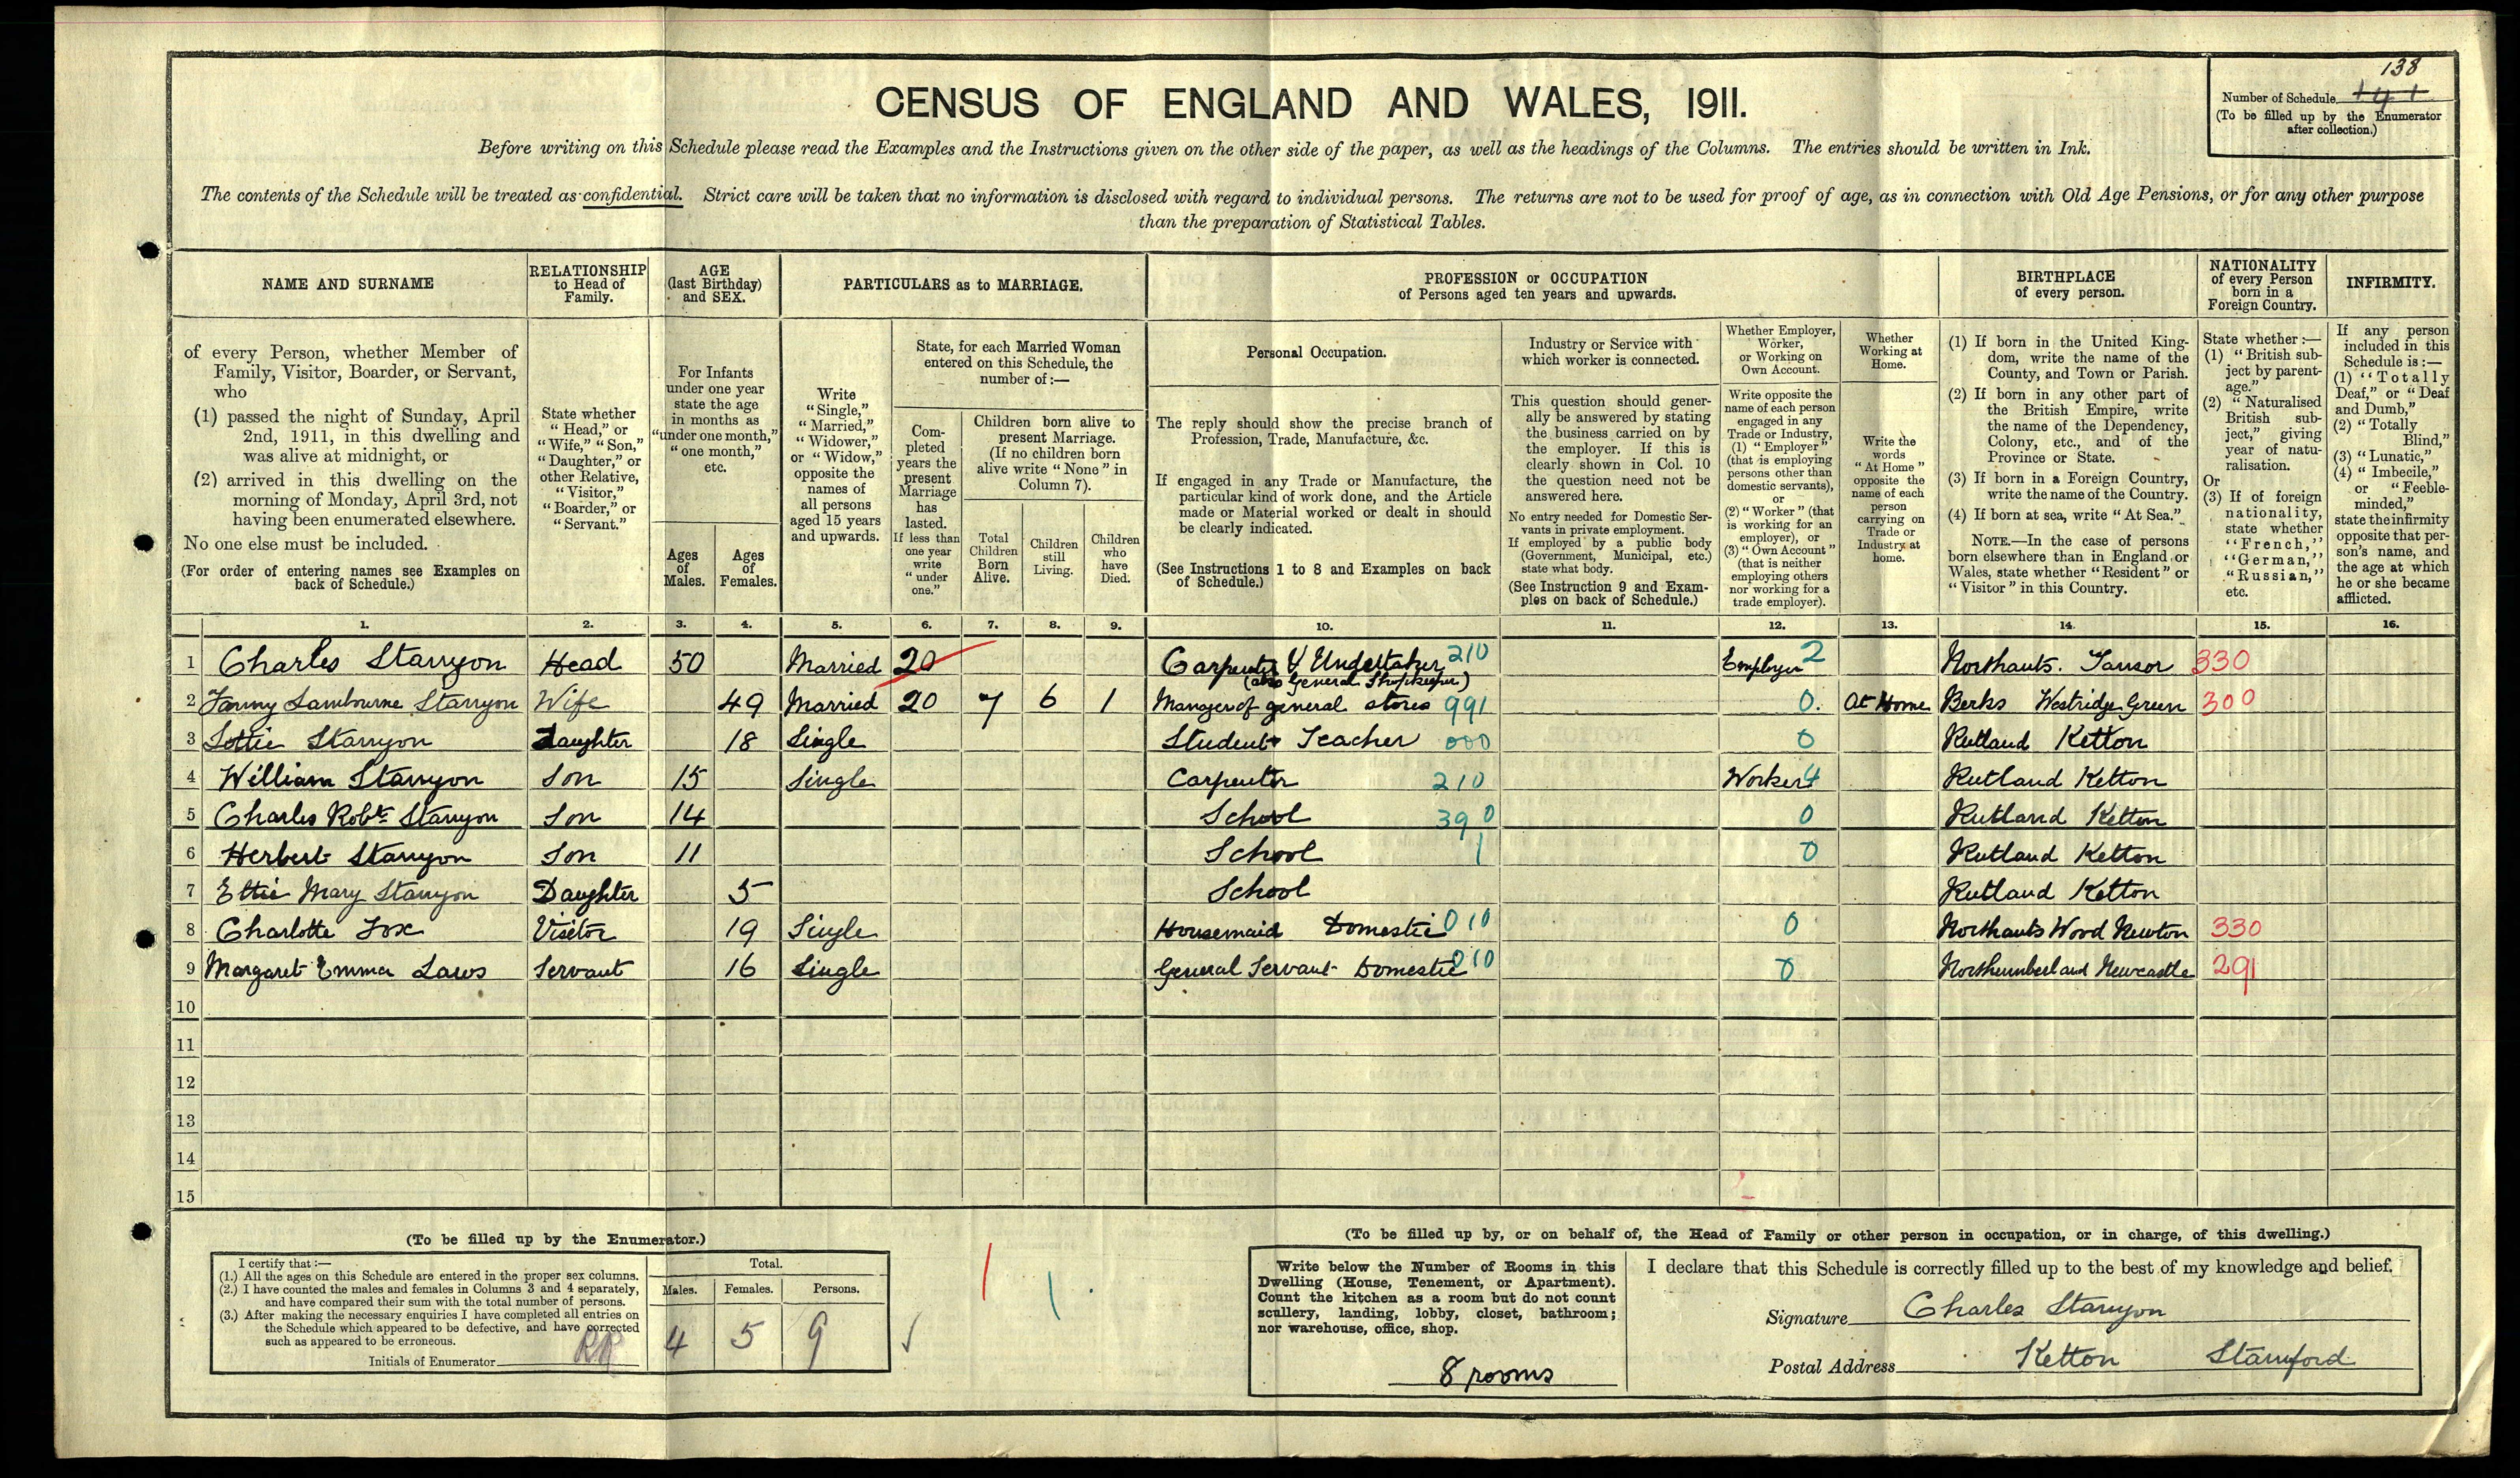 138
Number of Schedule 141
(To be filled up by the Enumerator
after collection.)
CENSUS OF ENGLAND AND WALES, 1911.
Before writing on this Schedule please read the Examples and the Instructions given on the other side of the paper, as well as the headings of the Columns. The entries should be written in Ink.
The contents of the Schedule will be treated as confidential. Strict care will be taken that no information is disclosed with regard to individual persons. The returns are not to be used for proof of age, as in connection with Old Age Pensions, or for any other purpose
than the preparation of Statistical Tables.
NAME AND SURNAME
of every Person, whether Member of
Family, Visitor, Boarder, or Servant,
who
(1) passed the night of Sunday, April
2nd, 1911, in this dwelling and
was alive at midnight, or
(2) arrived in this dwelling on the
morning of Monday, April 3rd, not
having been enumerated elsewhere.
No one else must be included.
(For order of entering names see Examples on
back of Schedule.)
RELATIONSHIP
to Head of
Family.
State whether
"Head," or
"Wife," "Son,"
"Daughter," or
other Relative,
"Visitor,"
"Boarder," or
"Servant."
AGE
(last Birthday)
and SEX.
For Infants
under one year
state the age
in months as
"under one month,"
"one month,"
etc.
Ages
of
Males.
Ages
of
Females.
PARTICULARS as to MARRIAGE.
Write
"Single,"
"Married,"
"Widower,"
or "Widow,"
opposite the
names of
all persons
aged 15 years
and upwards.
State, for each Married Woman
entered on this Schedule, the
number of:—
Com-
pleted
years the
present
Marriage
has
lasted.
If less than
one year
write
"under
one."
Children born alive to
present Marriage.
(If no children born
alive write "None" in
Column 7).
Total
Children
Born
Alive.
Children
still
Living.
Children
who
have
Died.
PROFESSION or OCCUPATION
of Persons aged ten years and upwards.
Personal Occupation.
The reply should show the precise branch of
Profession, Trade, Manufacture, &c.
If engaged in any Trade or Manufacture, the
particular kind of work done, and the Article
made or Material worked or dealt in should
be clearly indicated.
(See Instructions 1 to 8 and Examples on back
of Schedule.)
Industry or Service with
which worker is connected.
This question should gener-
ally be answered by stating
the business carried on by
the employer. If this is
clearly shown in Col. 10
the question need not be
answered here.
No entry needed for Domestic Ser-
vants in private employment.
If employed by a public body
(Government, Municipal, etc.)
state what body.
(See Instruction 9 and Exam-
ples on back of Schedule.)
Whether Employer,
Worker,
or Working on
Own Account.
Write opposite the
name of each person
engaged in any
Trade or Industry,
(1) "Employer"
(that is employing
persons other than
domestic servants),
or
(2) "Worker" (that
is working for an
employer), or
(3) "Own Account"
(that is neither
employing others
nor working for a
trade employer).
Whether
Working at
Home.
Write the
words
"At Home"
opposite the
name of each
person
carrying on
Trade or
Industry at
home.
BIRTHPLACE
of every person.
(1) If born in the United King-
dom, write the name of the
County, and Town or Parish.
(2) If born in any other part of
the British Empire, write
the name of the Dependency,
Colony, etc., and of the
Province or State.
(3) If born in a Foreign Country,
write the name of the Country.
(4) If born at sea, write "At Sea."
NOTE.—In the case of persons
born elsewhere than in England or
Wales, state whether "Resident" or
"Visitor" in this Country.
NATIONALITY
of every Person
born in a
Foreign Country.
State whether:—
(1) "British sub-
ject by parent-
age."
(2) "Naturalised
British sub-
ject," giving
year of natu-
ralisation.
Or
(3) If of foreign
nationality,
state whether
"French,"
"German,"
"Russian,"
etc.
INFIRMITY.
If any person
included in this
Schedule is:—
(1) "Totally
Deaf," or "Deaf
and Dumb,"
(2) "Totally
Blind,"
(3) "Lunatic,"
(4) "Imbecile,"
or "Feeble-
minded,"
state the infirmity
opposite that per-
son's name, and
the age at which
he or she became
afflicted.
1. 2. 3. 4. 5. 6. 7. 8. 9. 10. 11. 12. 13. 14. 15. 16.
1 Charles Stanyon Head 50 Married 20 Carpenter & Undertaker 210 Employer 2 Northants. Tansor 330
(also General Shopkeeper)
2 Fanny Lambourne Stanyon Wife 49 Married 20 7 6 1 Manager of general stores 991 0. At Home Berks Westridge Green 300
3 Lottie Stanyon Daughter 18 Single Student Teacher 000 0 Rutland Ketton
4 William Stanyon Son 15 Single Carpenter 210 Worker 4 Rutland Ketton
5 Charles Robt. Stanyon Son 14 School 39 0 0 Rutland Ketton
6 Herbert Stanyon Son 11 School 1 0 Rutland Ketton
7 Ettie Mary Stanyon Daughter 5 School Rutland Ketton
8 Charlotte Fox Visitor 19 Single Housemaid Domestic 010 0 Northants Wood Newton 330
9 Margaret Emma Laws Servant 16 Single General Servant Domestic 010 0 Northumberland Newcastle 291
10
11
12
13
14
15
(To be filled up by the Enumerator.)
I certify that:—
(1.) All the ages on this Schedule are entered in the proper sex columns.
(2.) I have counted the males and females in Columns 3 and 4 separately,
and have compared their sum with the total number of persons.
(3.) After making the necessary enquiries I have completed all entries on
the Schedule which appeared to be defective, and have corrected
such as appeared to be erroneous.
Initials of Enumerator RR
Total.
Males. Females. Persons.
4 5 9
(To be filled up by, or on behalf of, the Head of Family or other person in occupation, or in charge, of this dwelling.)
Write below the Number of Rooms in this
Dwelling (House, Tenement, or Apartment).
Count the kitchen as a room but do not count
scullery, landing, lobby, closet, bathroom;
nor warehouse, office, shop.
8 rooms
I declare that this Schedule is correctly filled up to the best of my knowledge and belief.
Signature Charles Stanyon
Postal Address Ketton Stamford